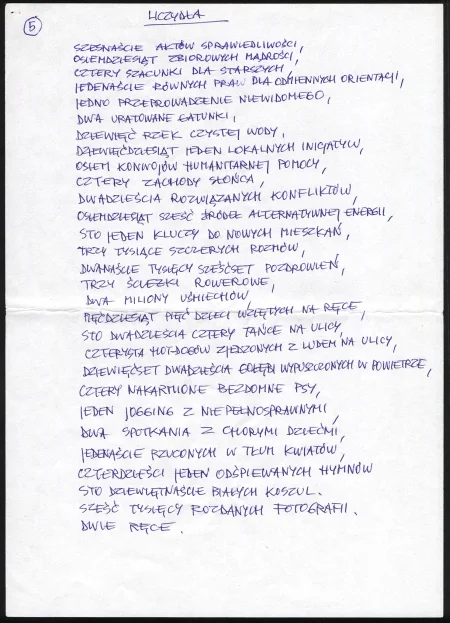 LICZYDŁA
5
SZESNAŚCIE AKTÓW SPRAWIEDLIWOŚCI,
OSIEMDZIESIĄT ZBIOROWYCH MĄDROŚCI,
CZTERY SZACUNKI DLA STARSZYCH,
JEDENAŚCIE RÓWNYCH PRAW DLA ODMIENNYCH ORIENTACJI,
JEDNO PRZEPROWADZENIE NIEWIDOMEGO,
DWA URATOWANE GATUNKI,
DZIEWIĘĆ RZEK CZYSTEJ WODY,
DZIEWIĘĆDZIESIĄT JEDEN LOKALNYCH INICJATYW,
OSIEM KONWOJÓW HUMANITARNEJ POMOCY,
CZTERY ZACHODY SŁOŃCA,
DWADZIEŚCIA ROZWIĄZANYCH KONFLIKTÓW,
OSIEMDZIESIĄT SZEŚĆ ŹRÓDEŁ ALTERNATYWNEJ ENERGII,
STO JEDEN KLUCZY DO NOWYCH MIESZKAŃ,
TRZY TYSIĄCE SZCZERYCH ROZMÓW,
DWANAŚCIE TYSIĘCY SZEŚĆSET POZDROWIEŃ,
TRZY ŚCIEŻKI ROWEROWE,
DWA MILIONY UŚMIECHÓW,
PIĘĆDZIESIĄT PIĘĆ DZIECI WZIĘTYCH NA RĘCE,
STO DWADZIEŚCIA CZTERY TAŃCE NA ULICY,
CZTERYSTA HOT-DOGÓW ZJEDZONYCH Z LUDEM NA ULICY,
DZIEWIĘĆSET DWADZIEŚCIA GOŁĘBI WYPUSZCZONYCH W POWIETRZE,
CZTERY NAKARMIONE BEZDOMNE PSY,
JEDEN JOGGING Z NIEPEŁNOSPRAWNYMI,
DWA SPOTKANIA Z CHORYMI DZIEĆMI,
JEDENAŚCIE RZUCONYCH W TŁUM KWIATÓW,
CZTERDZIEŚCI JEDEN ODŚPIEWANYCH HYMNÓW
STO DZIEWIĘTNAŚCIE BIAŁYCH KOSZUL.
SZEŚĆ TYSIĘCY ROZDANYCH FOTOGRAFII.
DWIE RĘCE.